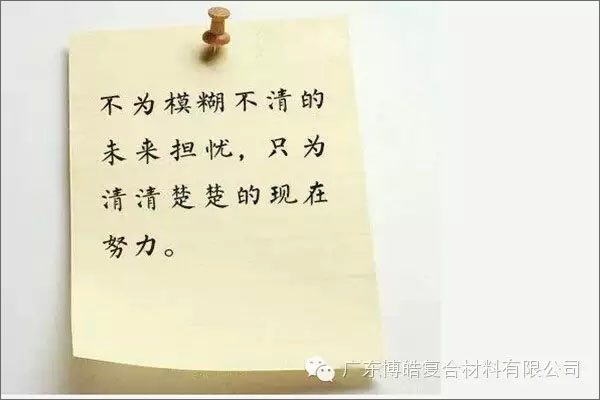 不为模糊不清的
未来担忧，只为
清清楚楚的现在
努力。
广东博皓复合材料有限公司